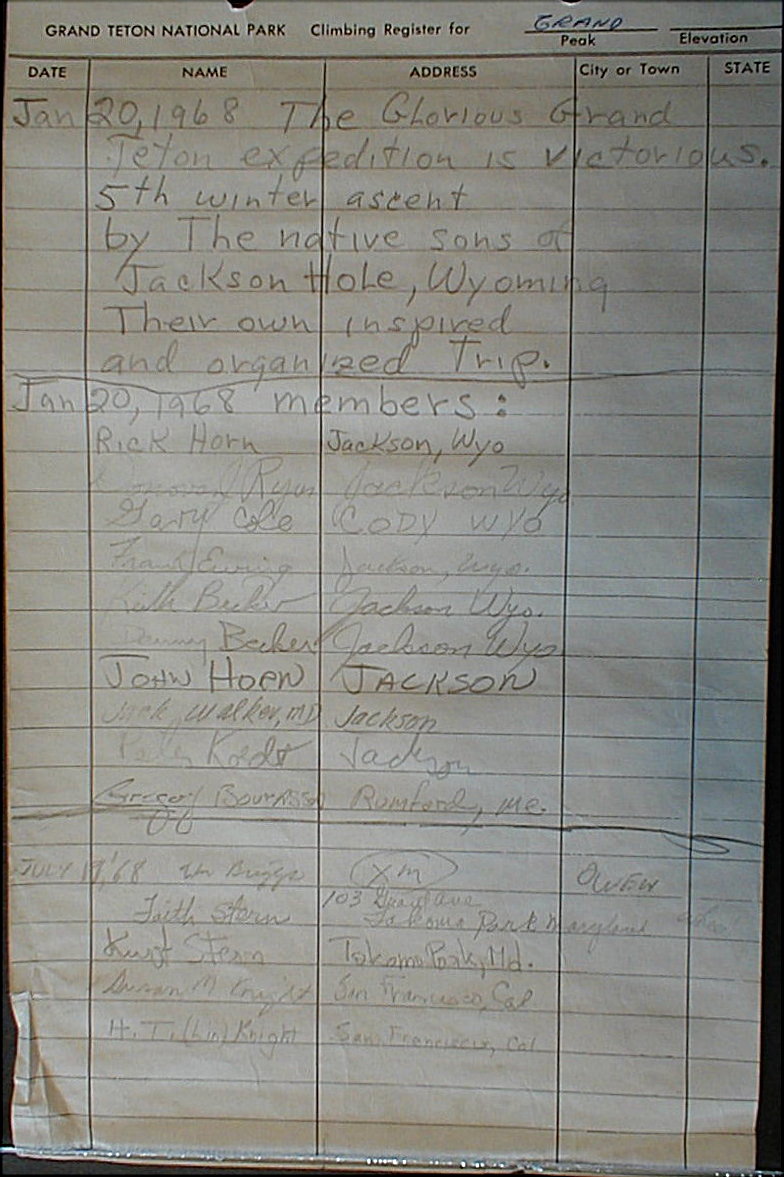 GRAND TETON NATIONAL PARK Climbing Register for GRAND
Peak Elevation
DATE NAME ADDRESS City or Town STATE
Jan 20, 1968 The Glorious Grand
Teton expedition is victorious.
5th winter ascent
by The native sons of
Jackson Hole, Wyoming
Their own inspired
and organized Trip.
Jan 20, 1968 members:
Rick Horn Jackson, Wyo
Ryan Jackson Wyo
Gary Cole CODY WYO
Frank Ewing Jackson, Wyo.
Keith Becker Jackson Wyo.
Denny Becker Jackson Wyo
JOHN HORN JACKSON
Jack Walker, MD Jackson
Jackson
Rumford, Me.
JULY 19, '68 Wm Briggs OWEN
103
Faith Stern Takoma Park Maryland
Kurt Stern Takoma Park, Md.
Susan M Knight San Francisco, Cal
H. T. (Lin) Knight San Francisco, Cal